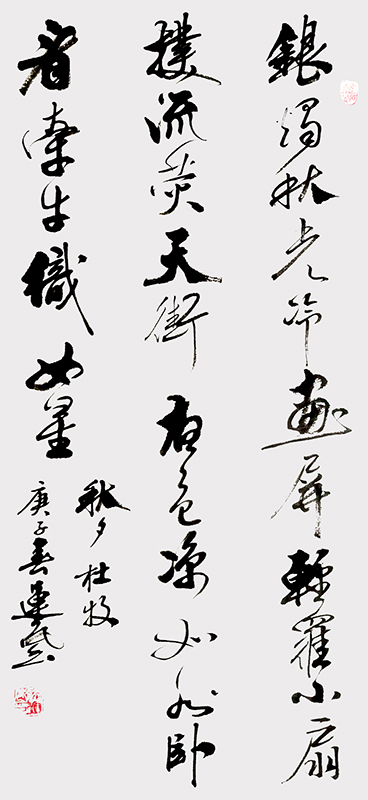 銀燭秋光冷畫屏輕羅小扇
撲流螢天街夜色凉如水卧
看牽牛織女星
秋夕杜牧
庚子春